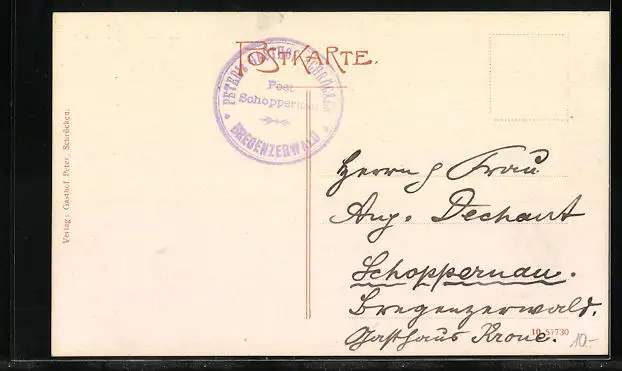 POSTKARTE.
PETER'S GASTHOF, SCHRÖCKEN
Post
Schoppernau
BREGENZERWALD
Verlag: Gasthof Peter, Schröcken.
Herrn & Frau
Aug. Dechant
Schoppernau.
Bregenzerwald.
Gasthaus Krone.
10 57730
10.-